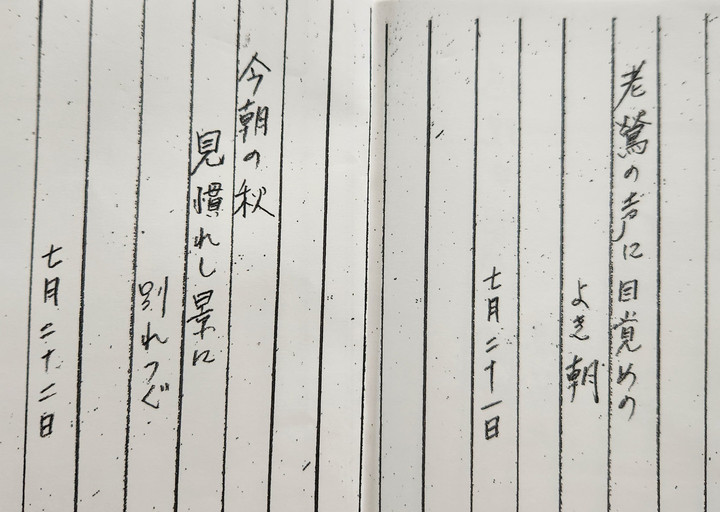 老鶯の声に目覚めの
よき朝
七月二十一日
今朝の秋
見慣れし景に
別れつぐ
七月二十二日